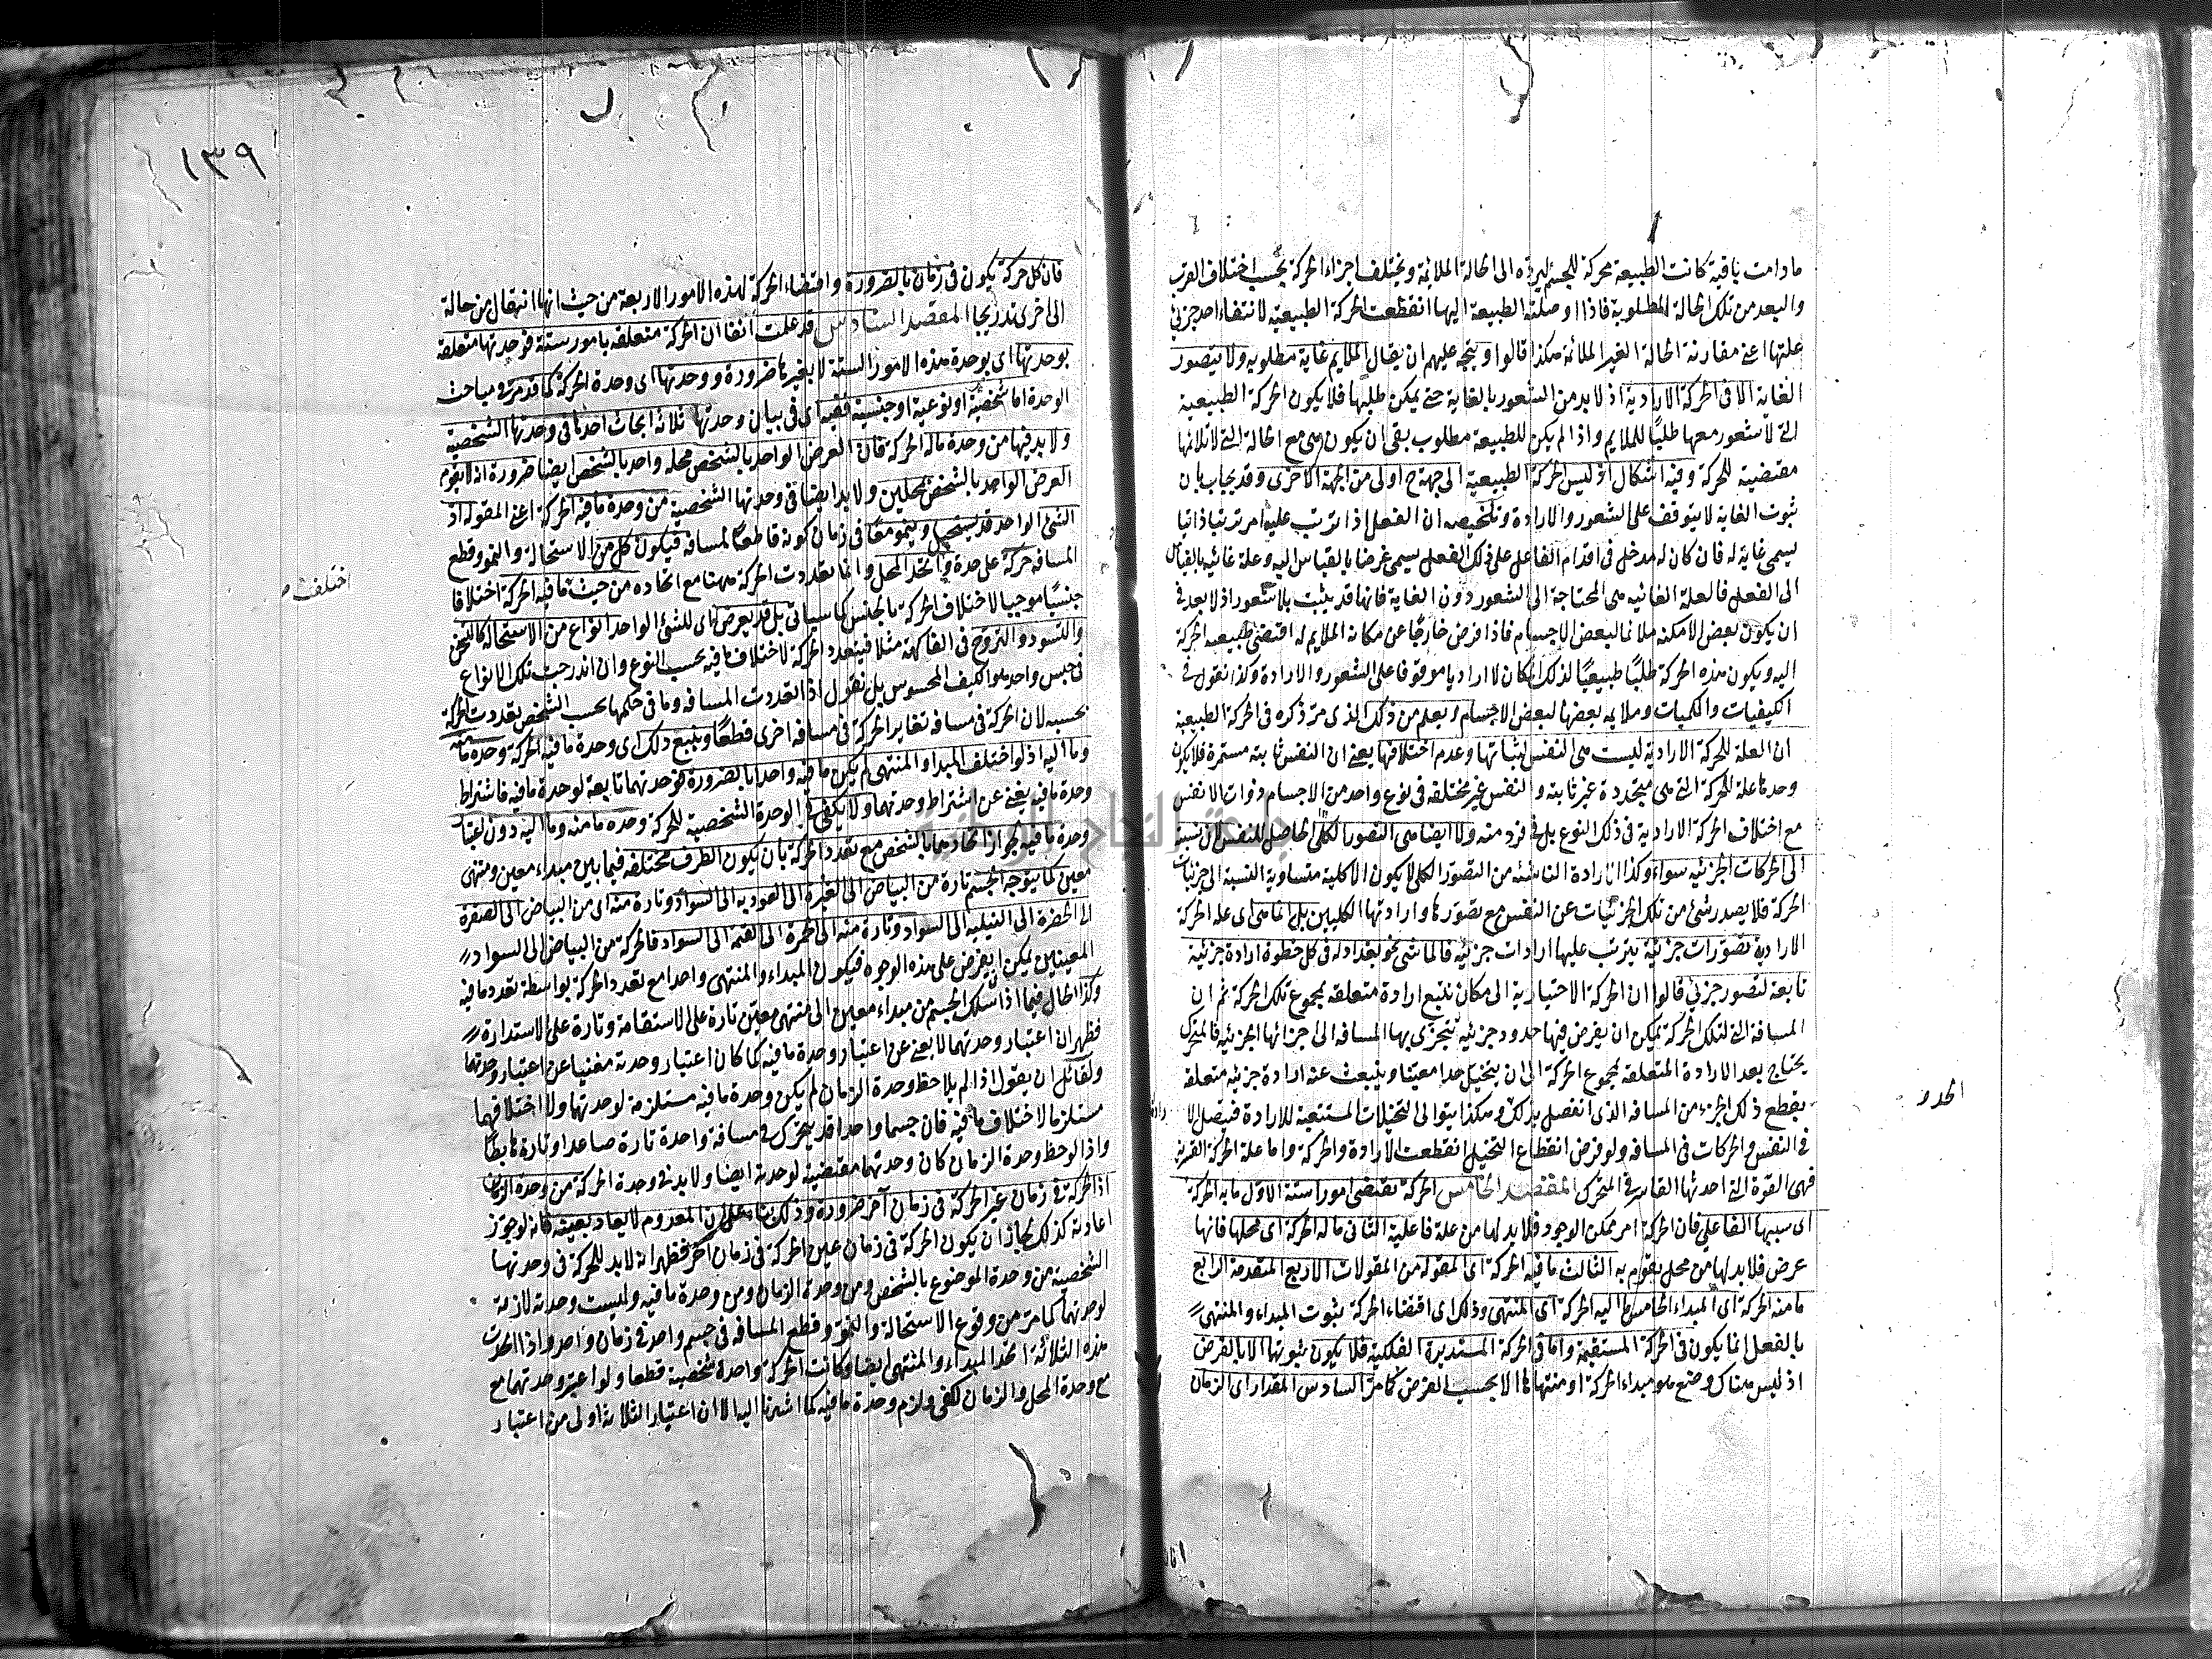 مادامت باقية كانت الطبيعة محركة للجسم ليرده الى الحالة الملائمة ويختلف اجزاء الحركة بحسب اختلاف القرب
والبعد من تلك الحالة المطلوبة فاذا اوصلته الطبيعة اليها انقطعت الحركة الطبيعية لانتفاء احد جزئي
علتها اعني مقارنة الحالة الغير الملائمة هكذا قالوا ويتجه عليهم ان يقال الملايم غاية مطلوبه ولا يتصور
الغاية الا في الحركة الارادية اذ لا بد من الشعور بالغاية حتى يمكن طلبها فلا يكون الحركة الطبيعية
التي لا شعور معها طلبا للملايم واذا لم يكن للطبيعة مطلوب بقي ان يكون هي مع الحالة التي لا تلائمها
مقتضية للحركة وفيه اشكال اذ ليس الحركة الطبيعية الى جهة ح اولى من الجهة الاخرى وقد يجاب بان
ثبوت الغاية لا يتوقف على الشعور والارادة وتلخيصه ان الفعل اذا ترتب عليه امر ترتبا ذاتيا
يسمى غاية له فان كان له مدخل في اقدام الفاعل على ذلك الفعل يسمى غرضا بالقياس اليه وعلة غائيه بالقياس
الى الفعل فالعلة الغائيه هي المحتاجة الى الشعور دون الغاية فانها قد يثبت بلا شعور اذ لا بعد في
ان يكون بعض الامكنه ملائما لبعض الاجسام فاذا فرض خارجا عن مكانه الملايم له اقتضى طبيعه الحركة
اليه ويكون هذه الحركة طلبا طبيعيا لذلك المكان لا اراديا موقوفا على الشعور والارادة وكذا نقول في
الكيفيات والكميات وملايمه بعضها لبعض الاجسام ويعلم من ذلك الذى مر ذكره فى الحركة الطبيعية
ان العلة للحركة الارادية ليست هي النفس لثباتها وعدم اختلافها يعني ان النفس ثابته مستمرة فلا يكون
وحدها علة للحركة التي هي متجددة غير ثابته والنفس غير مختلفه في نوع واحد من الاجسام ذوات الانفس
مع اختلاف الحركة الارادية في ذلك النوع بل في فرد منه ولا ايضا هي التصور الكلي الحاصل للنفس لان نسبة
الى الحركات الجزئيه سواء وكذا الارادة الناشئه من التصور الكلي لا يكون الا كلية متساوية النسبة الى جزئيات
الحركة فلا يصدر شئ من تلك الجزئيات عن النفس مع تصورها وارادتها الكليين بل انما هى اى علة الحركة
الارادية تصورات جزئية يترتب عليها ارادات جزئيه فالماشى نحو بغداد له في كل خطوة ارادة جزئية
تابعة لتصور جزئي قالوا ان الحركة الاختيارية الى مكان تتبع ارادة متعلقه بمجموع تلك الحركة ثم ان
المسافة التي لتلك الحركة يمكن ان يفرض فيها حدود جزئيه تتجزى بها المسافه الى اجزائها الجزئيه فالمتحرك
يحتاج بعد الارادة المتعلقه بمجموع الحركة الى ان يتخيل حدا معينا وينبعث عنه ارادة جزئيه متعلقه
بقطع ذلك الجزء من المسافه الذى انفصل بذلك وهكذا يتوالى التخيلات المستتبعة للارادة فيتصل الا
في النفس والحركات في المسافه ولو فرض انقطاع التخيل انقطعت الارادة والحركة واما علة الحركة القسرية
فهي القوة التي احدثها القاسر في المتحرك المقصد الخامس الحركة تقتضي امورا ستة الاول ما به الحركة
اى سببها الفاعلي فان الحركة امر ممكن الوجود فلا بد لها من علة فاعلية الثاني ما له الحركة اى محلها فانها
عرض فلا بد لها من محل يقوم به الثالث ما فيه الحركة اى المقوله من المقولات الاربع المتقدمة الرابع
ما منه الحركة اى المبداء الخامس ما اليه الحركة اى المنتهى وذلك اى اقتضاء الحركة بثبوت المبداء والمنتهى
بالفعل انما يكون فى الحركة المستقيمة واما في الحركة المستديرة الفلكية فلا يكون ثبوتها الا بالفرض
اذ ليس هناك وضع هو مبداء الحركة او منتهاها الا بحسب الفرض كما مر السادس المقدار اى الزمان
الحدود
١٣٩
فان كل حركة يكون في زمان بالضرورة واقتضاء الحركة لهذه الامور الاربعة من حيث انها انتقال من حالة
الى اخرى تدريجا المقصد السادس قد علمت آنفا ان الحركة متعلقه بامور ستة فوحدتها متعلقه
بوحدتها اى بوحدة هذه الامور الستة لا بغيرها ضرورة ووحدتها اى وحدة الحركة كما قد مر في مباحث
الوحدة اما شخصية او نوعية او جنسية ففيه اى في بيان وحدتها ثلاثة ابحاث احدها في وحدتها الشخصية
ولا بد فيها من وحدة ما له الحركة فان العرض الواحد بالشخص محله واحد بالشخص ايضا ضرورة انه لا يقوم
العرض الواحد بالشخص بمحلين ولا بد ايضا فى وحدتها الشخصية من وحدة ما فيه الحركة اعني المقوله اذ
الشئ الواحد قد يستحيل وينمو معا في زمان كونه قاطعا لمسافه فيكون كل من الاستحالة والنمو وقطع
المسافه حركة على حدة واتحد المحل وانما تعددت الحركة ههنا مع اتحاده من حيث ما فيه الحركة اختلافا
جنسيا موجبا لاختلاف الحركة بالجنس كما سياتي بل قد يعرض اى للشئ الواحد انواع من الاستحالة كالتسخن
والتسود والتروح في الفاكهة مثلا فيتعدد الحركة لاختلاف ما فيه بحسب النوع وان اندرجت تلك الانواع
في جنس واحد هو الكيف المحسوس بل نقول اذا تعددت المسافه وما في حكمها بحسب الشخص تعددت الحركة
بحسبه لان الحركة في مسافه تغاير الحركة في مسافه اخرى قطعا ويتبع ذلك اى وحدة ما فيه الحركة وحده ما منه
وما اليه اذ لو اختلف المبدا والمنتهى لم يكن ما فيه واحدا بالضرورة فوحدتهما تابعة لوحدة ما فيه فاشتراط
وحدة ما فيه يغني عن اشتراط وحدتهما ولا يكفي في الوحدة الشخصية للحركة وحدة ما منه وما اليه دون اعتبار
وحدة ما فيه لجواز اتحادهما بالشخص مع تعدد الحركة بان يكون الطرق مختلفه فيما بين مبداء معين ومنتهى
معين كما يتوجه الجسم تارة من البياض الى الغبرة الى العودية الى السواد وتارة منه اى من البياض الى الصفرة
الى الخضرة الى النيليه الى السواد وتارة منه الى الحمرة الى القتمة الى السواد فالحركة من البياض الى السواد
المعينين يمكن ان يفرض على هذه الوجوه فيكون المبداء والمنتهى واحدا مع تعدد الحركة بواسطة تعدد ما فيه
وكذا الحال فيما اذا سلك الجسم من مبداء معين الى منتهى معين تارة على الاستقامة وتارة على الاستدارة
فظهر ان اعتبار وحدتهما لا يغني عن اعتبار وحدة ما فيه كما كان اعتبار وحدته مغنيا عن اعتبار وحدتهما
ولقائل ان يقول اذا لم يلاحظ وحدة الزمان لم يكن وحدة ما فيه مستلزمة لوحدتهما ولا اختلافهما
مستلزما لاختلاف ما فيه فان جسما واحدا قد يتحرك في مسافة واحدة تارة صاعدا وتارة هابطا
واذا لوحظ وحدة الزمان كان وحدتهما مقتضية لوحدته ايضا ولا بد في وحدة الحركة من وحدة الزمان
اذ الحركة في زمان غير الحركة في زمان آخر ضرورة وذلك بناء على ان المعدوم لا يعاد بعينه فانه لو جوز
اعادته كذلك لجاز ان يكون الحركة في زمان عين الحركة في زمان آخر فظهر انه لا بد للحركة في وحدتها
الشخصية من وحدة الموضوع بالشخص ومن وحدة الزمان ومن وحدة ما فيه وليست وحدته لازمة
لوحدتهما كما مر من وقوع الاستحالة والنمو وقطع المسافه في جسم واحد في زمان واحد واذا اتحدت
هذه الثلاثة اتحد المبداء والمنتهى ايضا وكانت الحركة واحدة شخصية قطعا ولو اعتبر وحدتهما مع
مع وحدة المحل والزمان لكفى ولزم وحدة ما فيه كما اشرنا اليه الا ان اعتبار الثلاثة اولى من اعتبار
اختلف